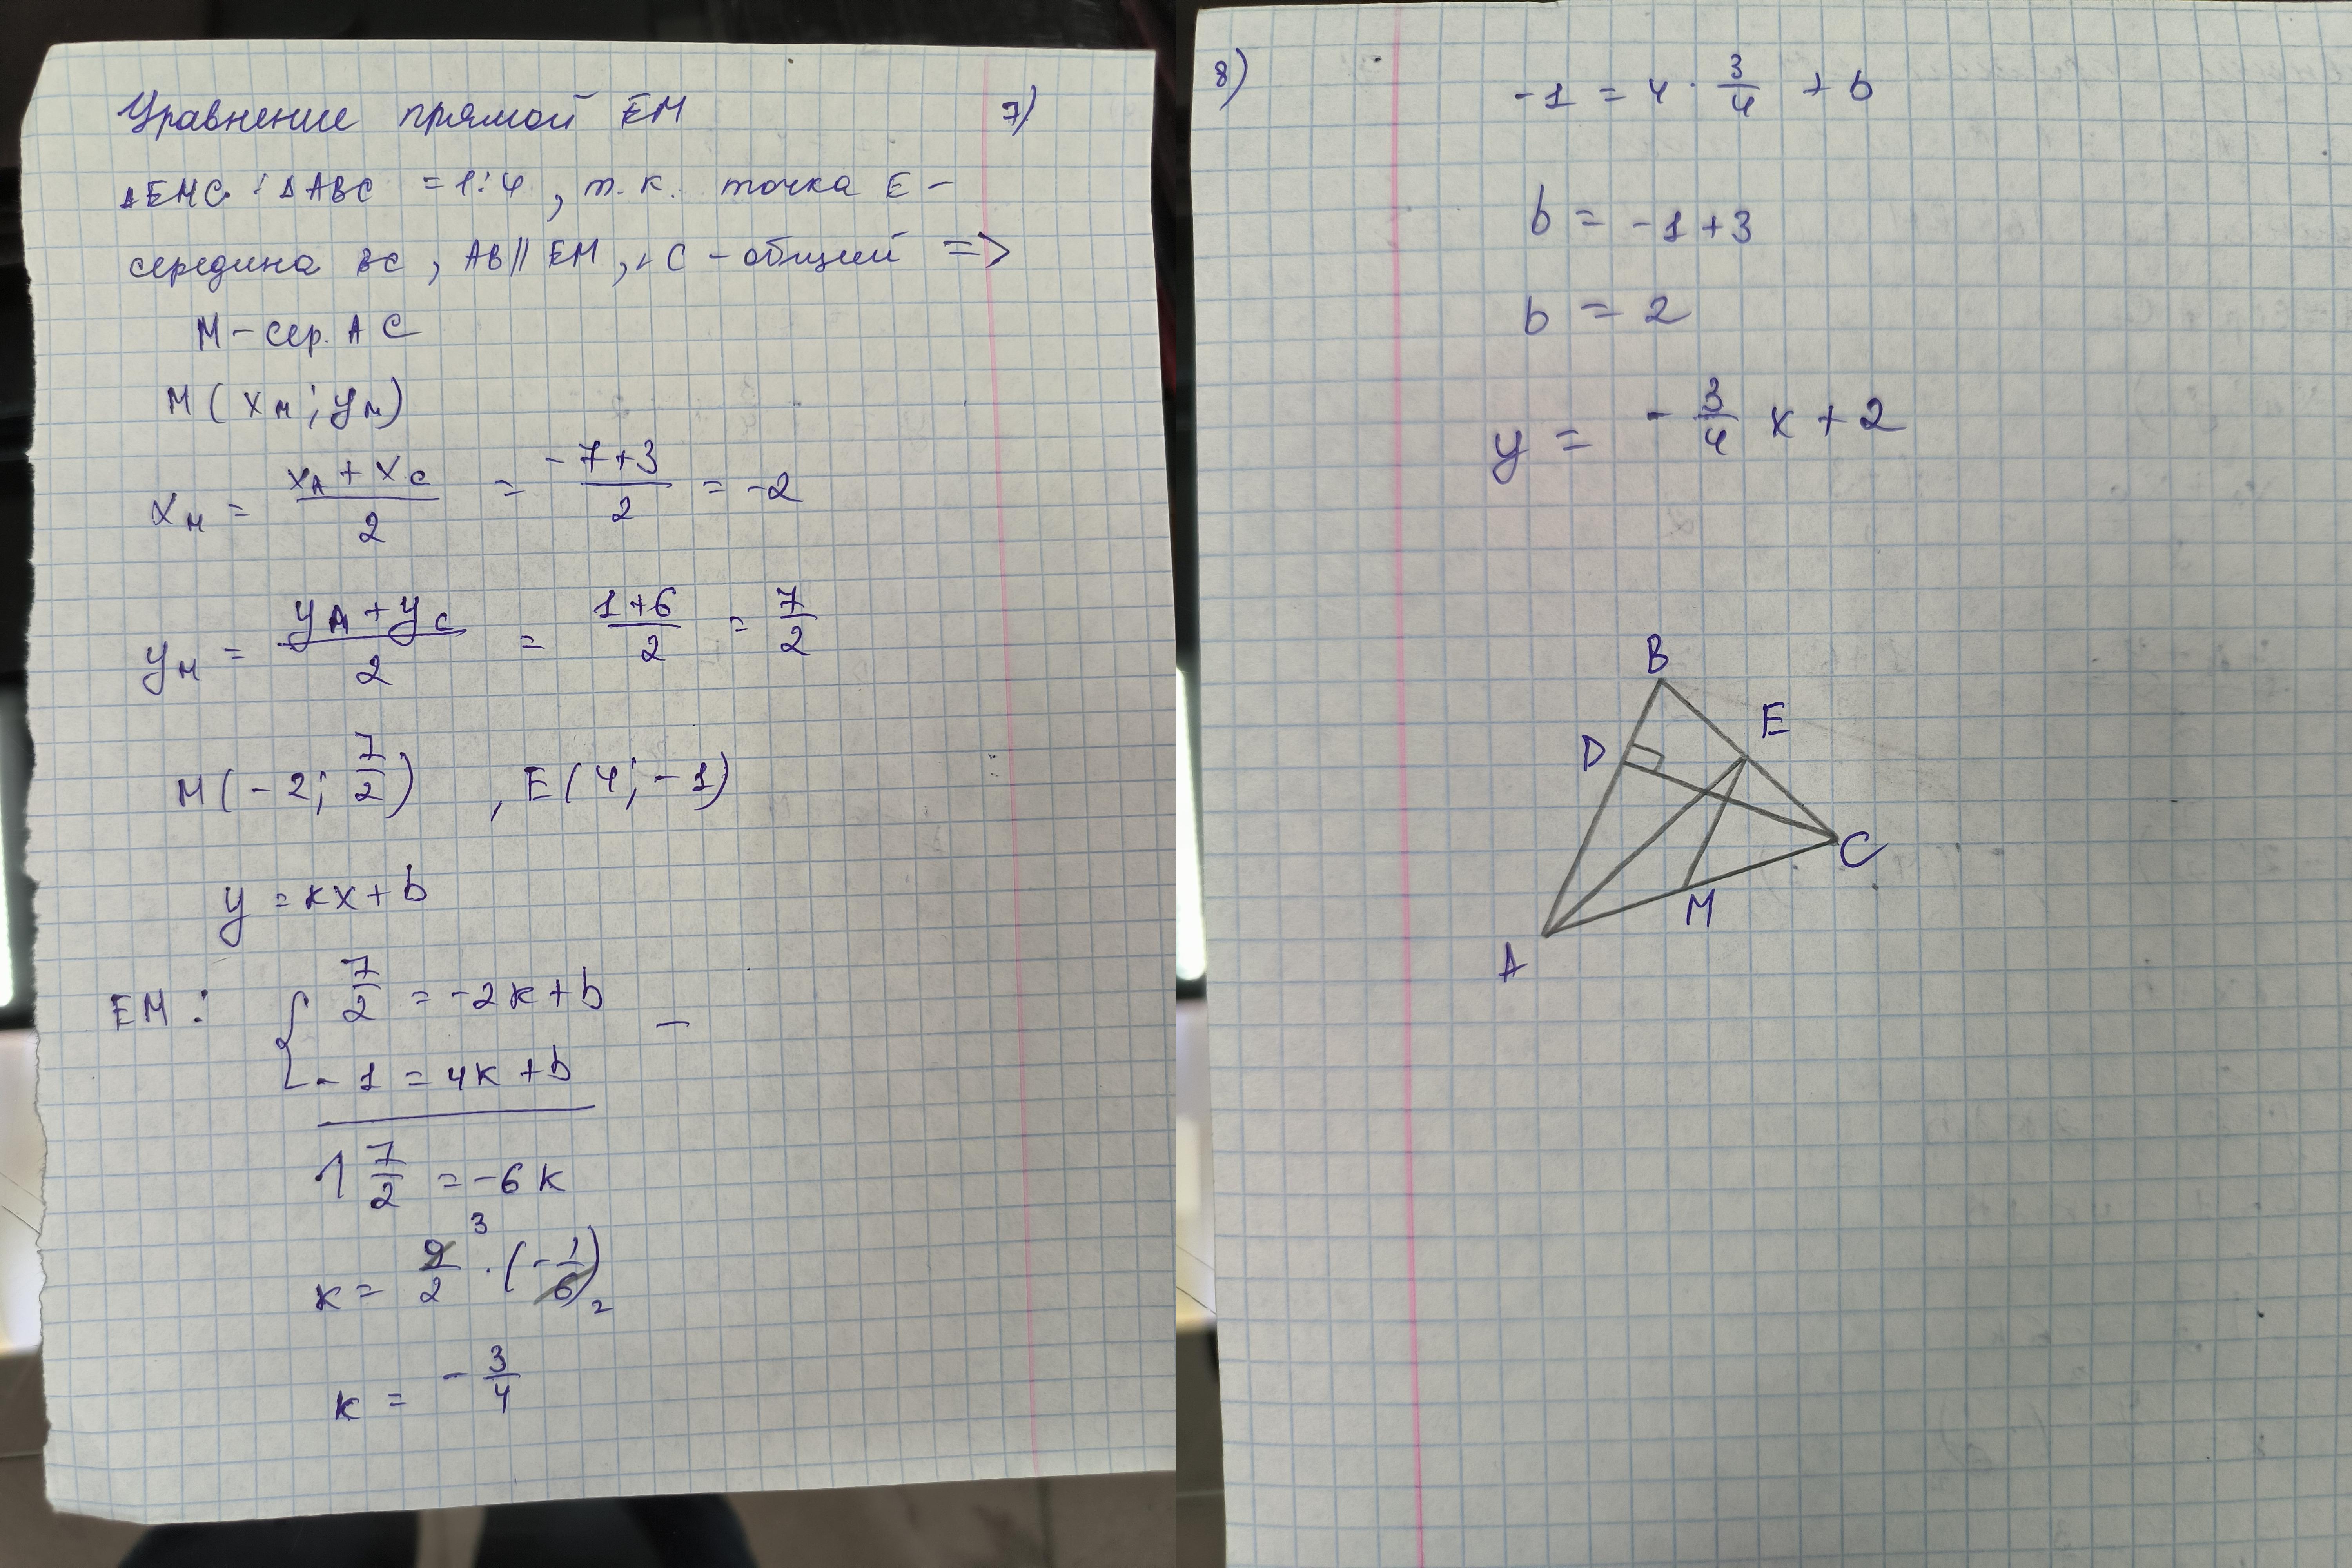 Уравнение прямой EM 7)
ΔEMC : ΔABC = 1:4, т.к. точка E –
середина BC, AB || EM, ∠C – общий =>
M – сер. AC
M(xM; yM)
xM = (xA + xC)/2 = (-7+3)/2 = -2
yM = (yA + yC)/2 = (1+6)/2 = 7/2
M(-2; 7/2), E(4; -1)
y = kx + b
EM: { 7/2 = -2k + b –
-1 = 4k + b
1 7/2 = -6k
k = 9/2 · (-1/6) 3 2
k = -3/4
8) -1 = 4 · 3/4 + b
b = -1+3
b = 2
y = -3/4 x + 2
B
E
D
C
M
A